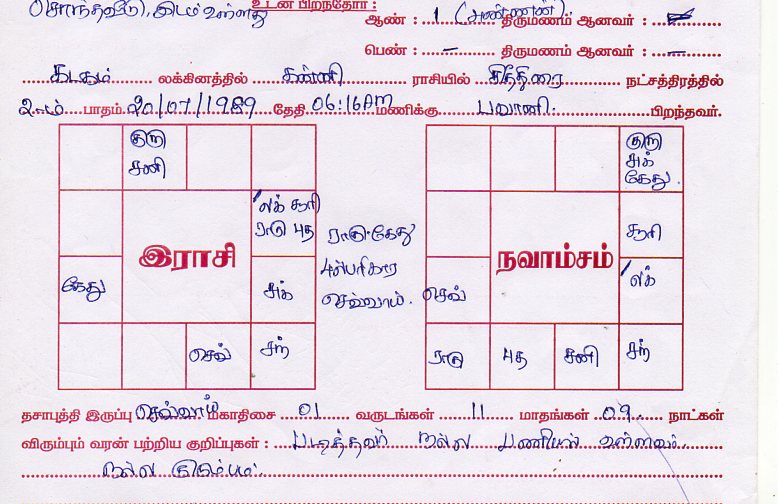 சொந்தவீடு, இடம் உள்ளது உடன் பிறந்தோர் :
ஆண் : 1 (அண்ணன்) திருமணம் ஆனவர் :
பெண் : – திருமணம் ஆனவர் : –
கடகம் லக்கினத்தில் கன்னி ராசியில் சித்திரை நட்சத்திரத்தில்
2-ம் பாதம் 20/07/1989 தேதி 06:16AM மணிக்கு பவானி. பிறந்தவர்.
குரு
சனி
லக் சூரி
ராகு புத
இராசி
கேது
சுக்
செவ்
சந்
ராகு-கேது
பரிகார
செவ்வாய்.
குரு
சுக்
கேது.
சூரி
நவாம்சம்
செவ்
லக்
ராகு
புத
சனி
சந்
தசாபுத்தி இருப்பு செவ்வாய் மகாதிசை 01 வருடங்கள் 11 மாதங்கள் 09 நாட்கள்
விரும்பும் வரன் பற்றிய குறிப்புகள் : படித்தவர் நல்ல பணியில் உள்ளவர்
நல்ல குடும்பம்.